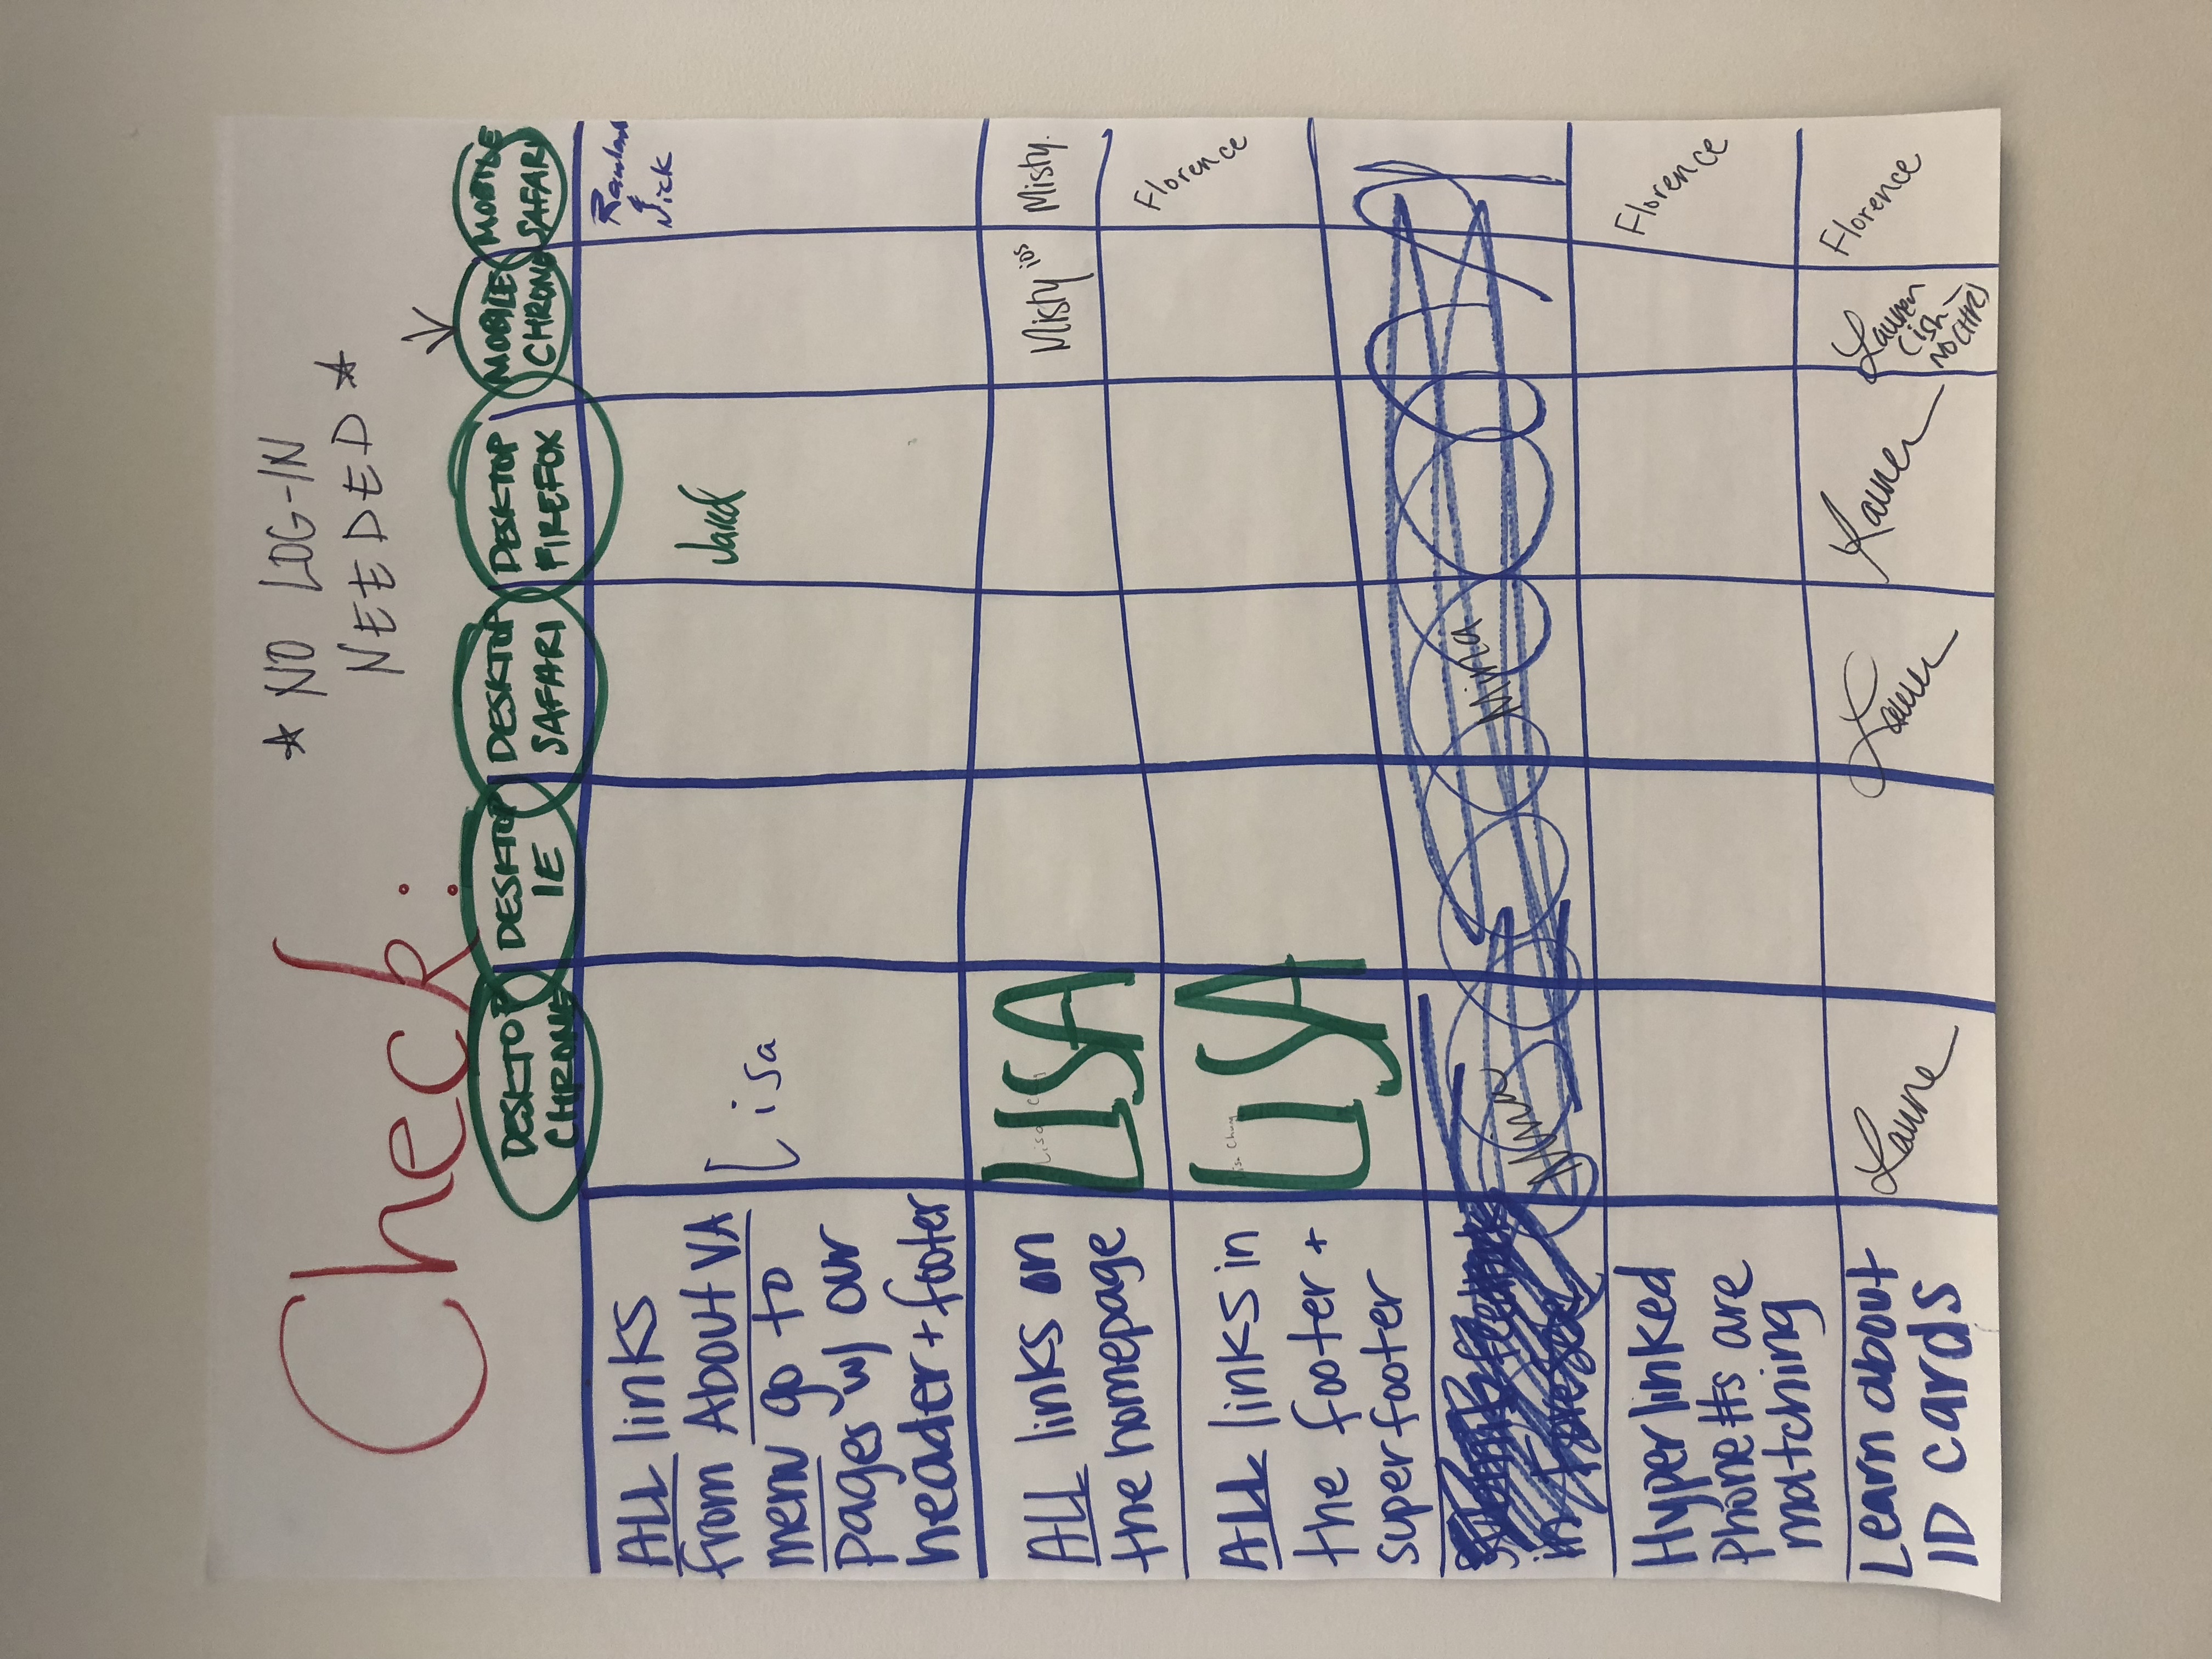 Check:
* NO LOG-IN
NEEDED *
DESKTOP
CHROME
DESKTOP
IE
DESKTOP
SAFARI
DESKTOP
FIREFOX
MOBILE
CHROME
MOBILE
SAFARI
ALL links
from About VA
menu go to
pages w/ our
header + footer
Lisa
Jared
&
Nick
ALL links on
the homepage
LISA
Misty ios
Misty.
ALL links in
the footer +
superfooter
Lisa Chung
LISA
Florence
Submit feedback
in Foresee
Mina
Mina
Hyperlinked
Phone #s are
matching
Florence
Learn about
ID cards
Lauren
Lauren
Lauren
Lauren
Florence